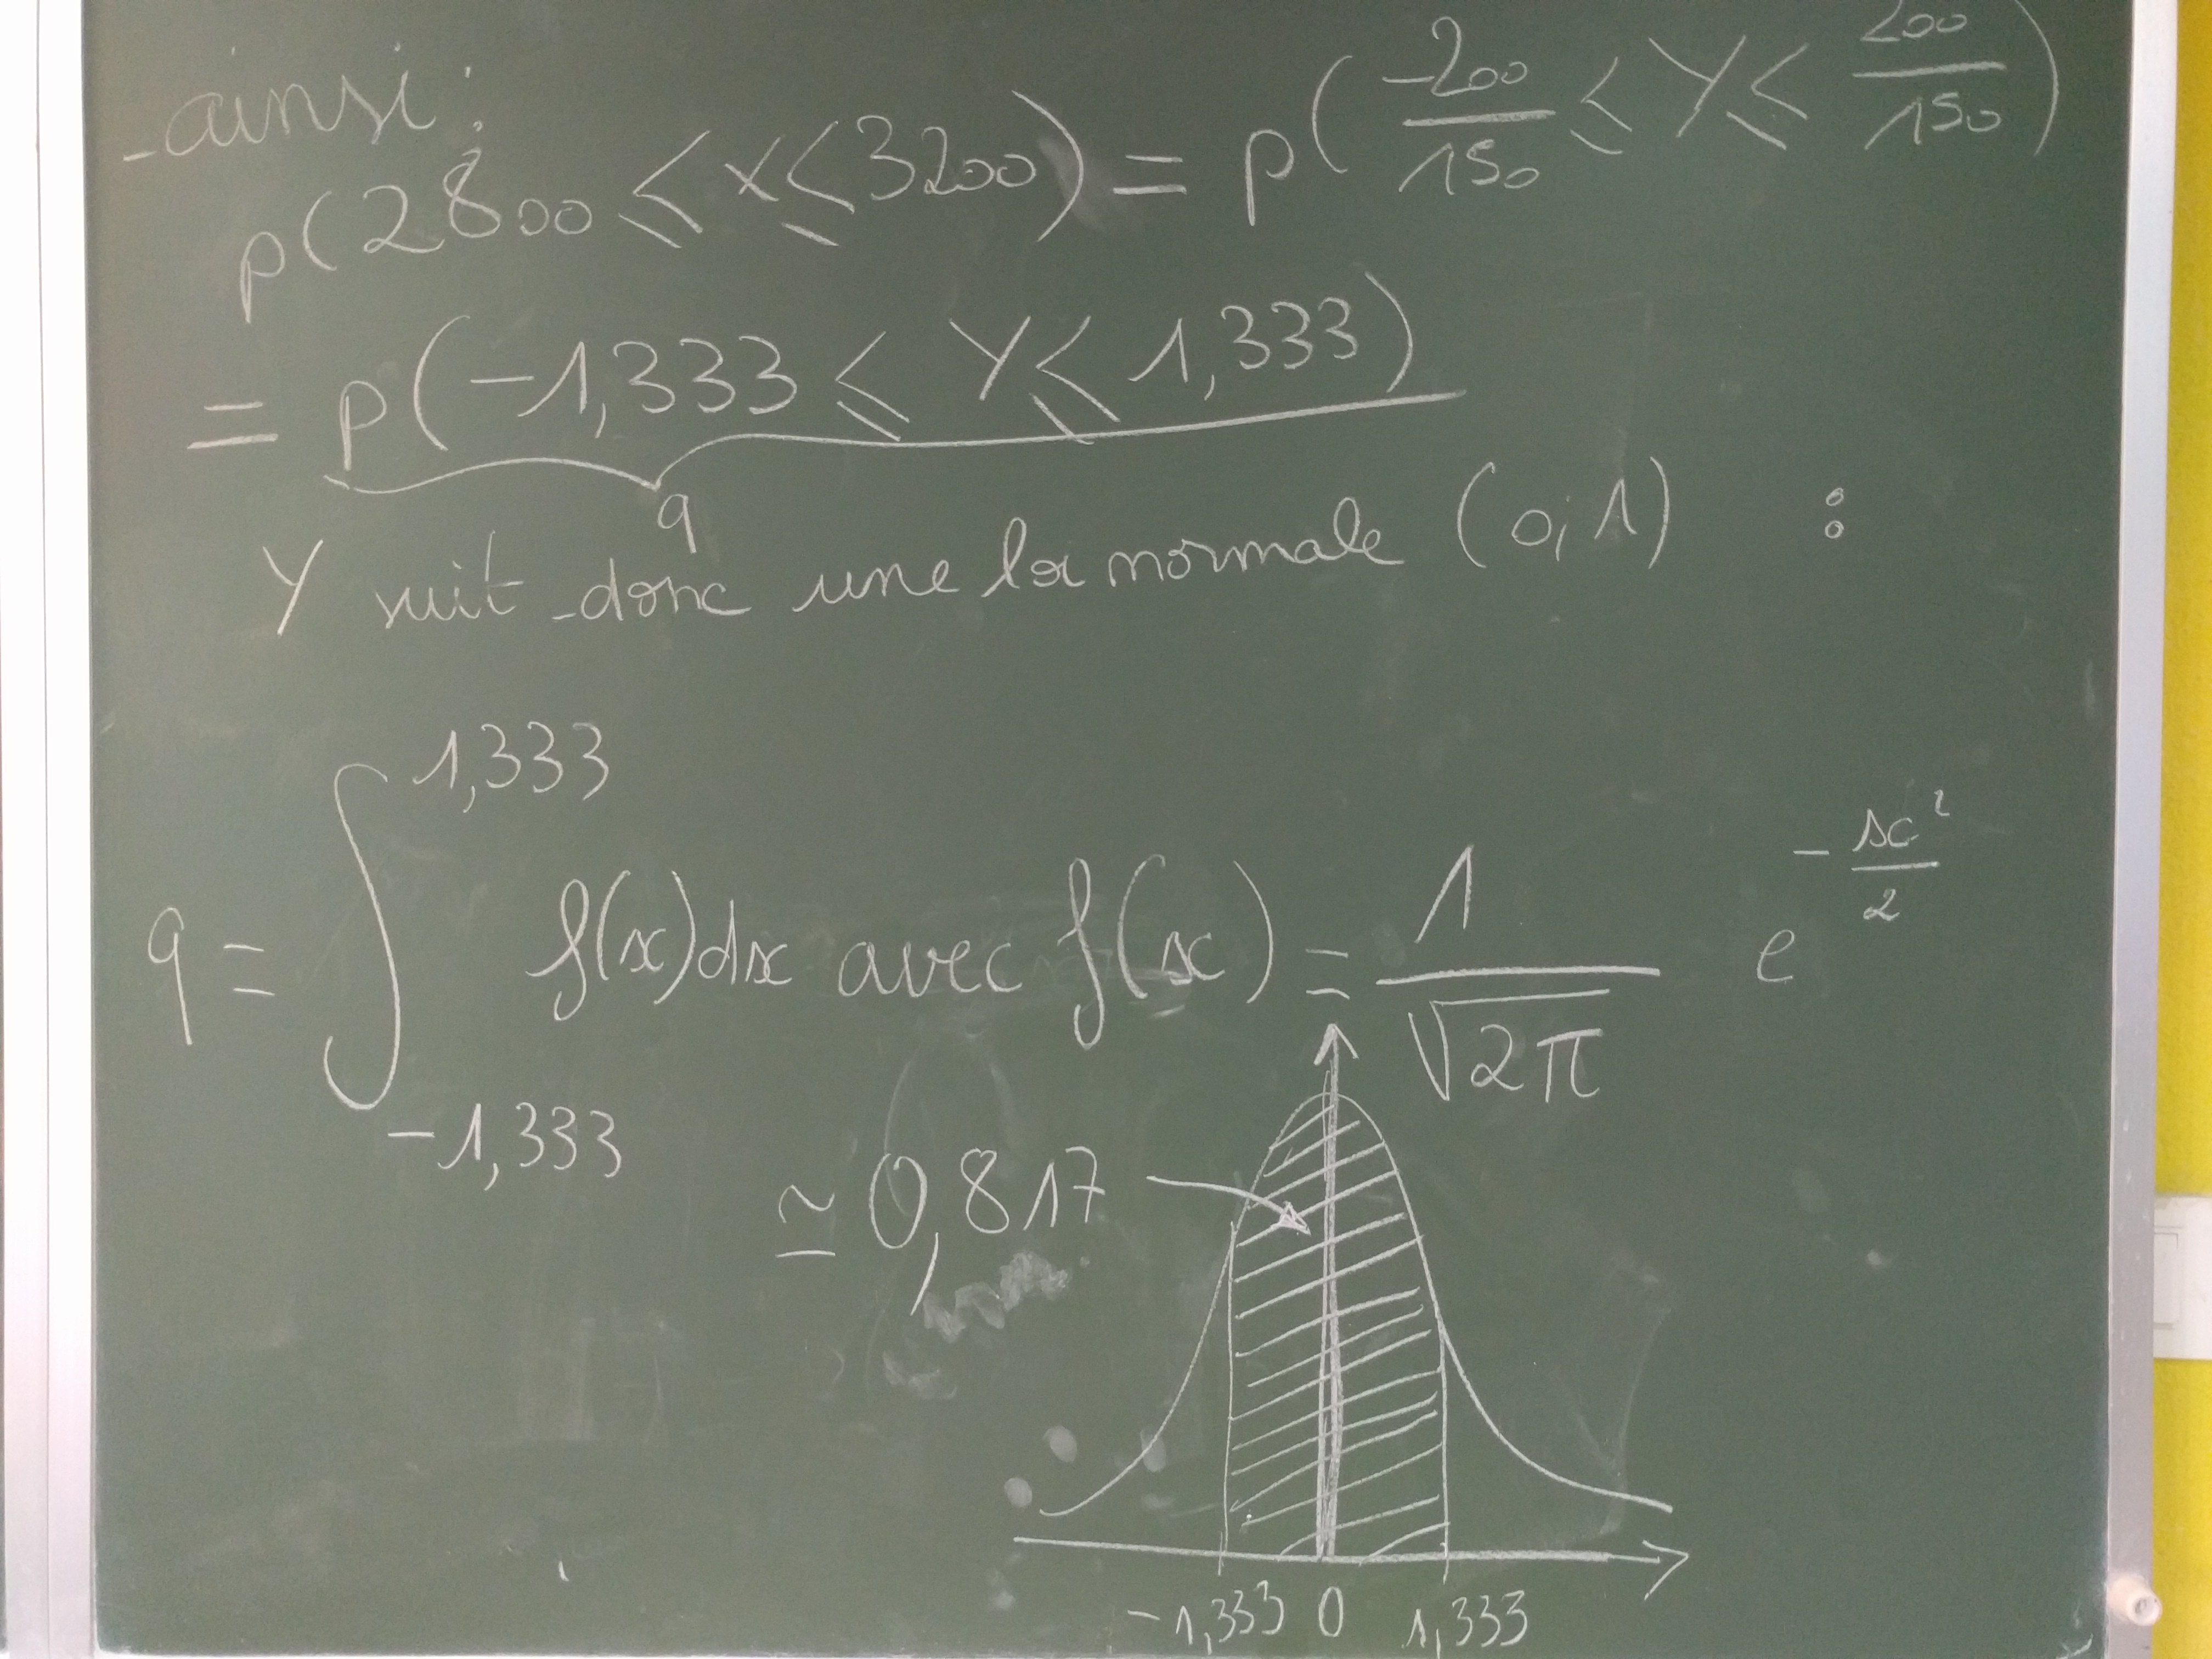 ainsi :
p(2800 ≤ X ≤ 3200) = p(-200/150 ≤ Y ≤ 200/150)
= p(-1,333 ≤ Y ≤ 1,333)
q
Y suit donc une loi normale (0;1) :
q = ∫_{-1,333}^{1,333} f(x)dx avec f(x) = 1/√2π e^{-x²/2}
≃ 0,817
-1,333 0 1,333